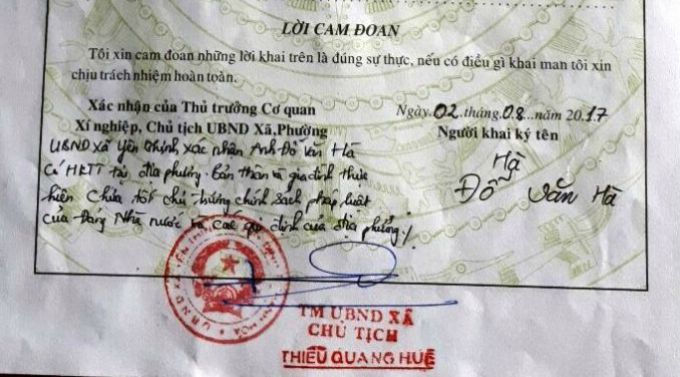 LỜI CAM ĐOAN
Tôi xin cam đoan những lời khai trên là đúng sự thực, nếu có điều gì khai man tôi xin
chịu trách nhiệm hoàn toàn.
Xác nhận của Thủ trưởng Cơ quan
Xí nghiệp, Chủ tịch UBND Xã,Phường
UBND xã Yên Thịnh, xác nhận Anh Đỗ Văn Hà
Có HKTT tại địa phương. bản thân và gia đình thực
hiện chưa tốt chủ trương chính sách pháp luật
của Đảng Nhà nước và các qui định của địa phương/.
Ngày.02.tháng.08...năm 2017
Người khai ký tên
Hà
Đỗ Văn Hà
TM UBND XÃ
CHỦ TỊCH
THIỀU QUANG HUẾ